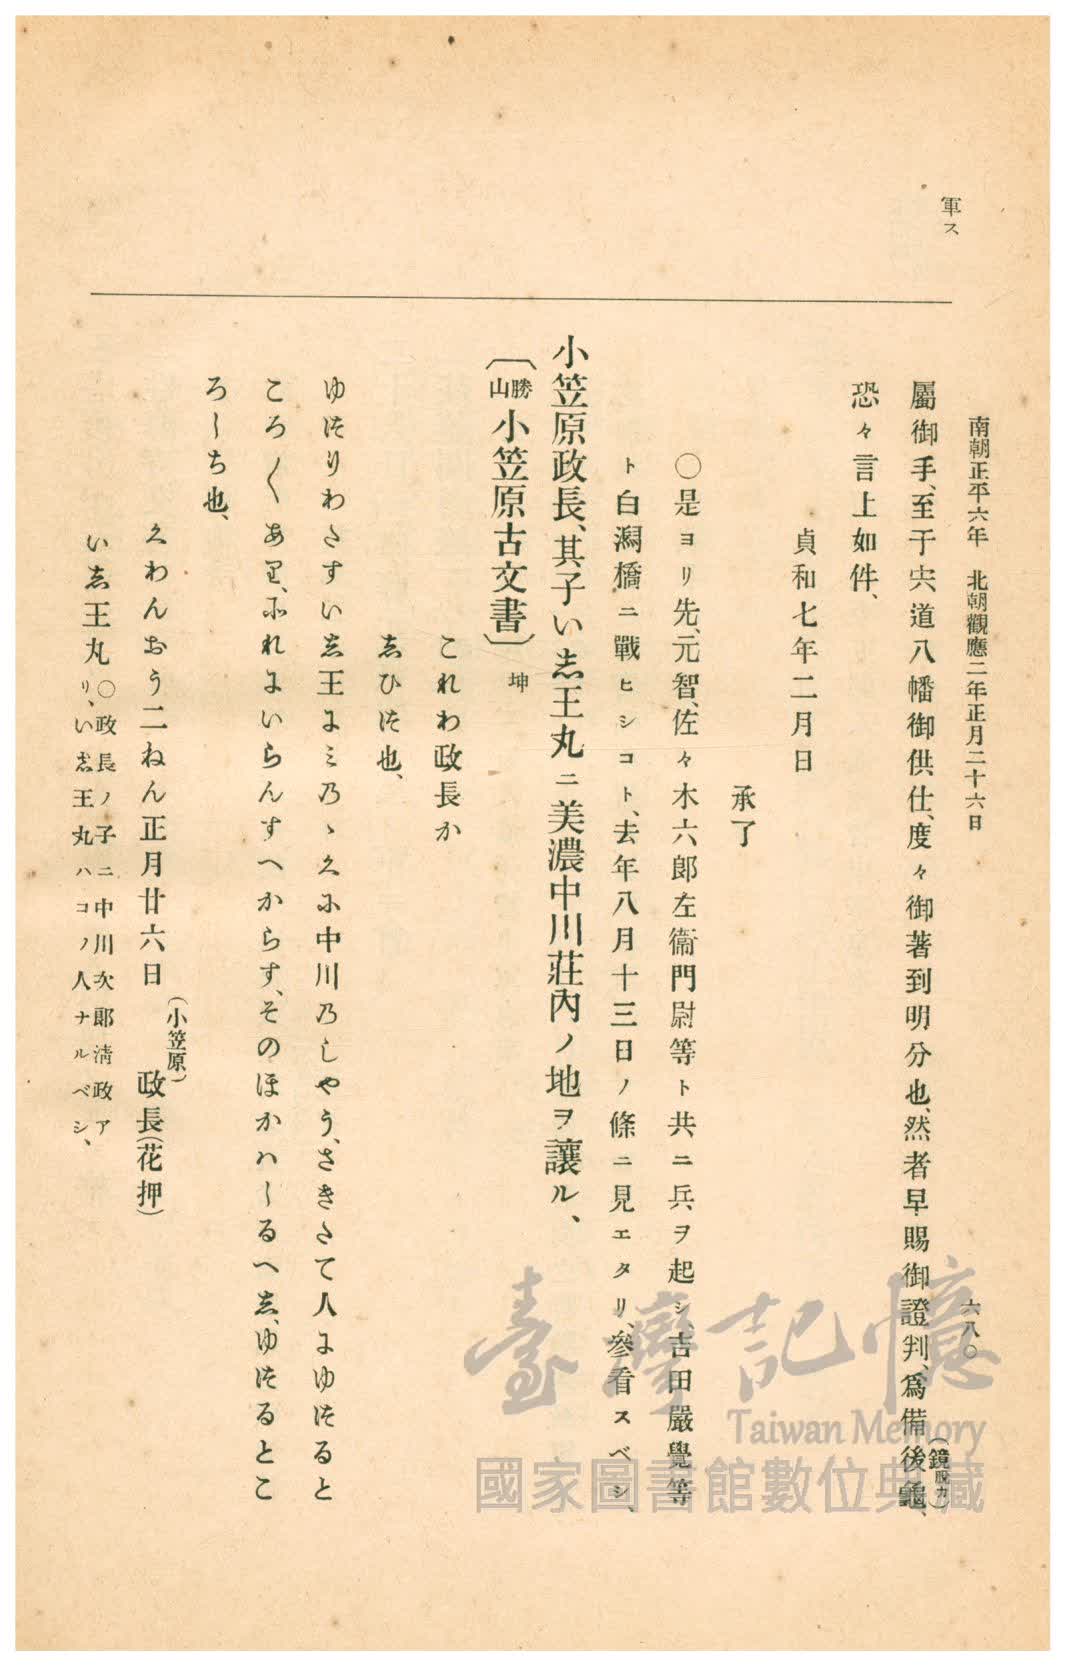 南朝正平六年　北朝觀應二年正月二十六日
六八〇
軍ス
屬御手、至于宍道八幡御供仕、度々御著到明分也、然者早賜御證判、爲備後龜、
(鏡脫カ)
恐々言上如件、
貞和七年二月日
承了
〇是ヨリ先、元智、佐々木六郎左衞門尉等ト共ニ兵ヲ起シ、吉田嚴覺等
ト白潟橋ニ戰ヒシコト、去年八月十三日ノ條ニ見エタリ、參看スベシ、
小笠原政長、其子い志王丸ニ美濃中川莊內ノ地ヲ讓ル、
〔勝山小笠原古文書〕坤
これわ政長か
志ひ徒也、
ゆ徒りわたすい志王にミ乃ゝ久に中川乃しやう、さきたて人にゆ徒ると
ころ〱あり、これにいらんすへからす、そのほかハしるへ志、ゆ徒るとこ
ろしち也、
久わんおう二ねん正月廿六日　政長(花押)
(小笠原)
い志王丸
〇政長ノ子ニ中川次郎淸政ア
リ、い志王丸ハコノ人ナルベシ、
臺灣記憶
Taiwan Memory
國家圖書館數位典藏